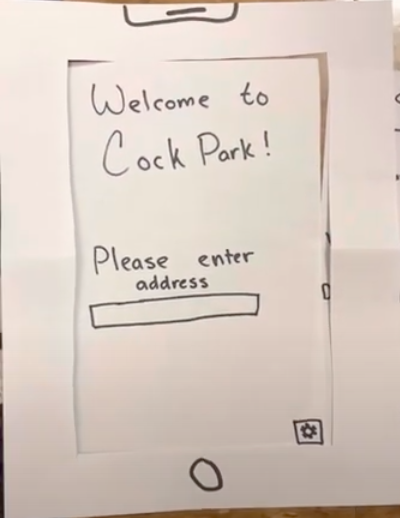 Welcome to
Cock Park!
Please enter
address